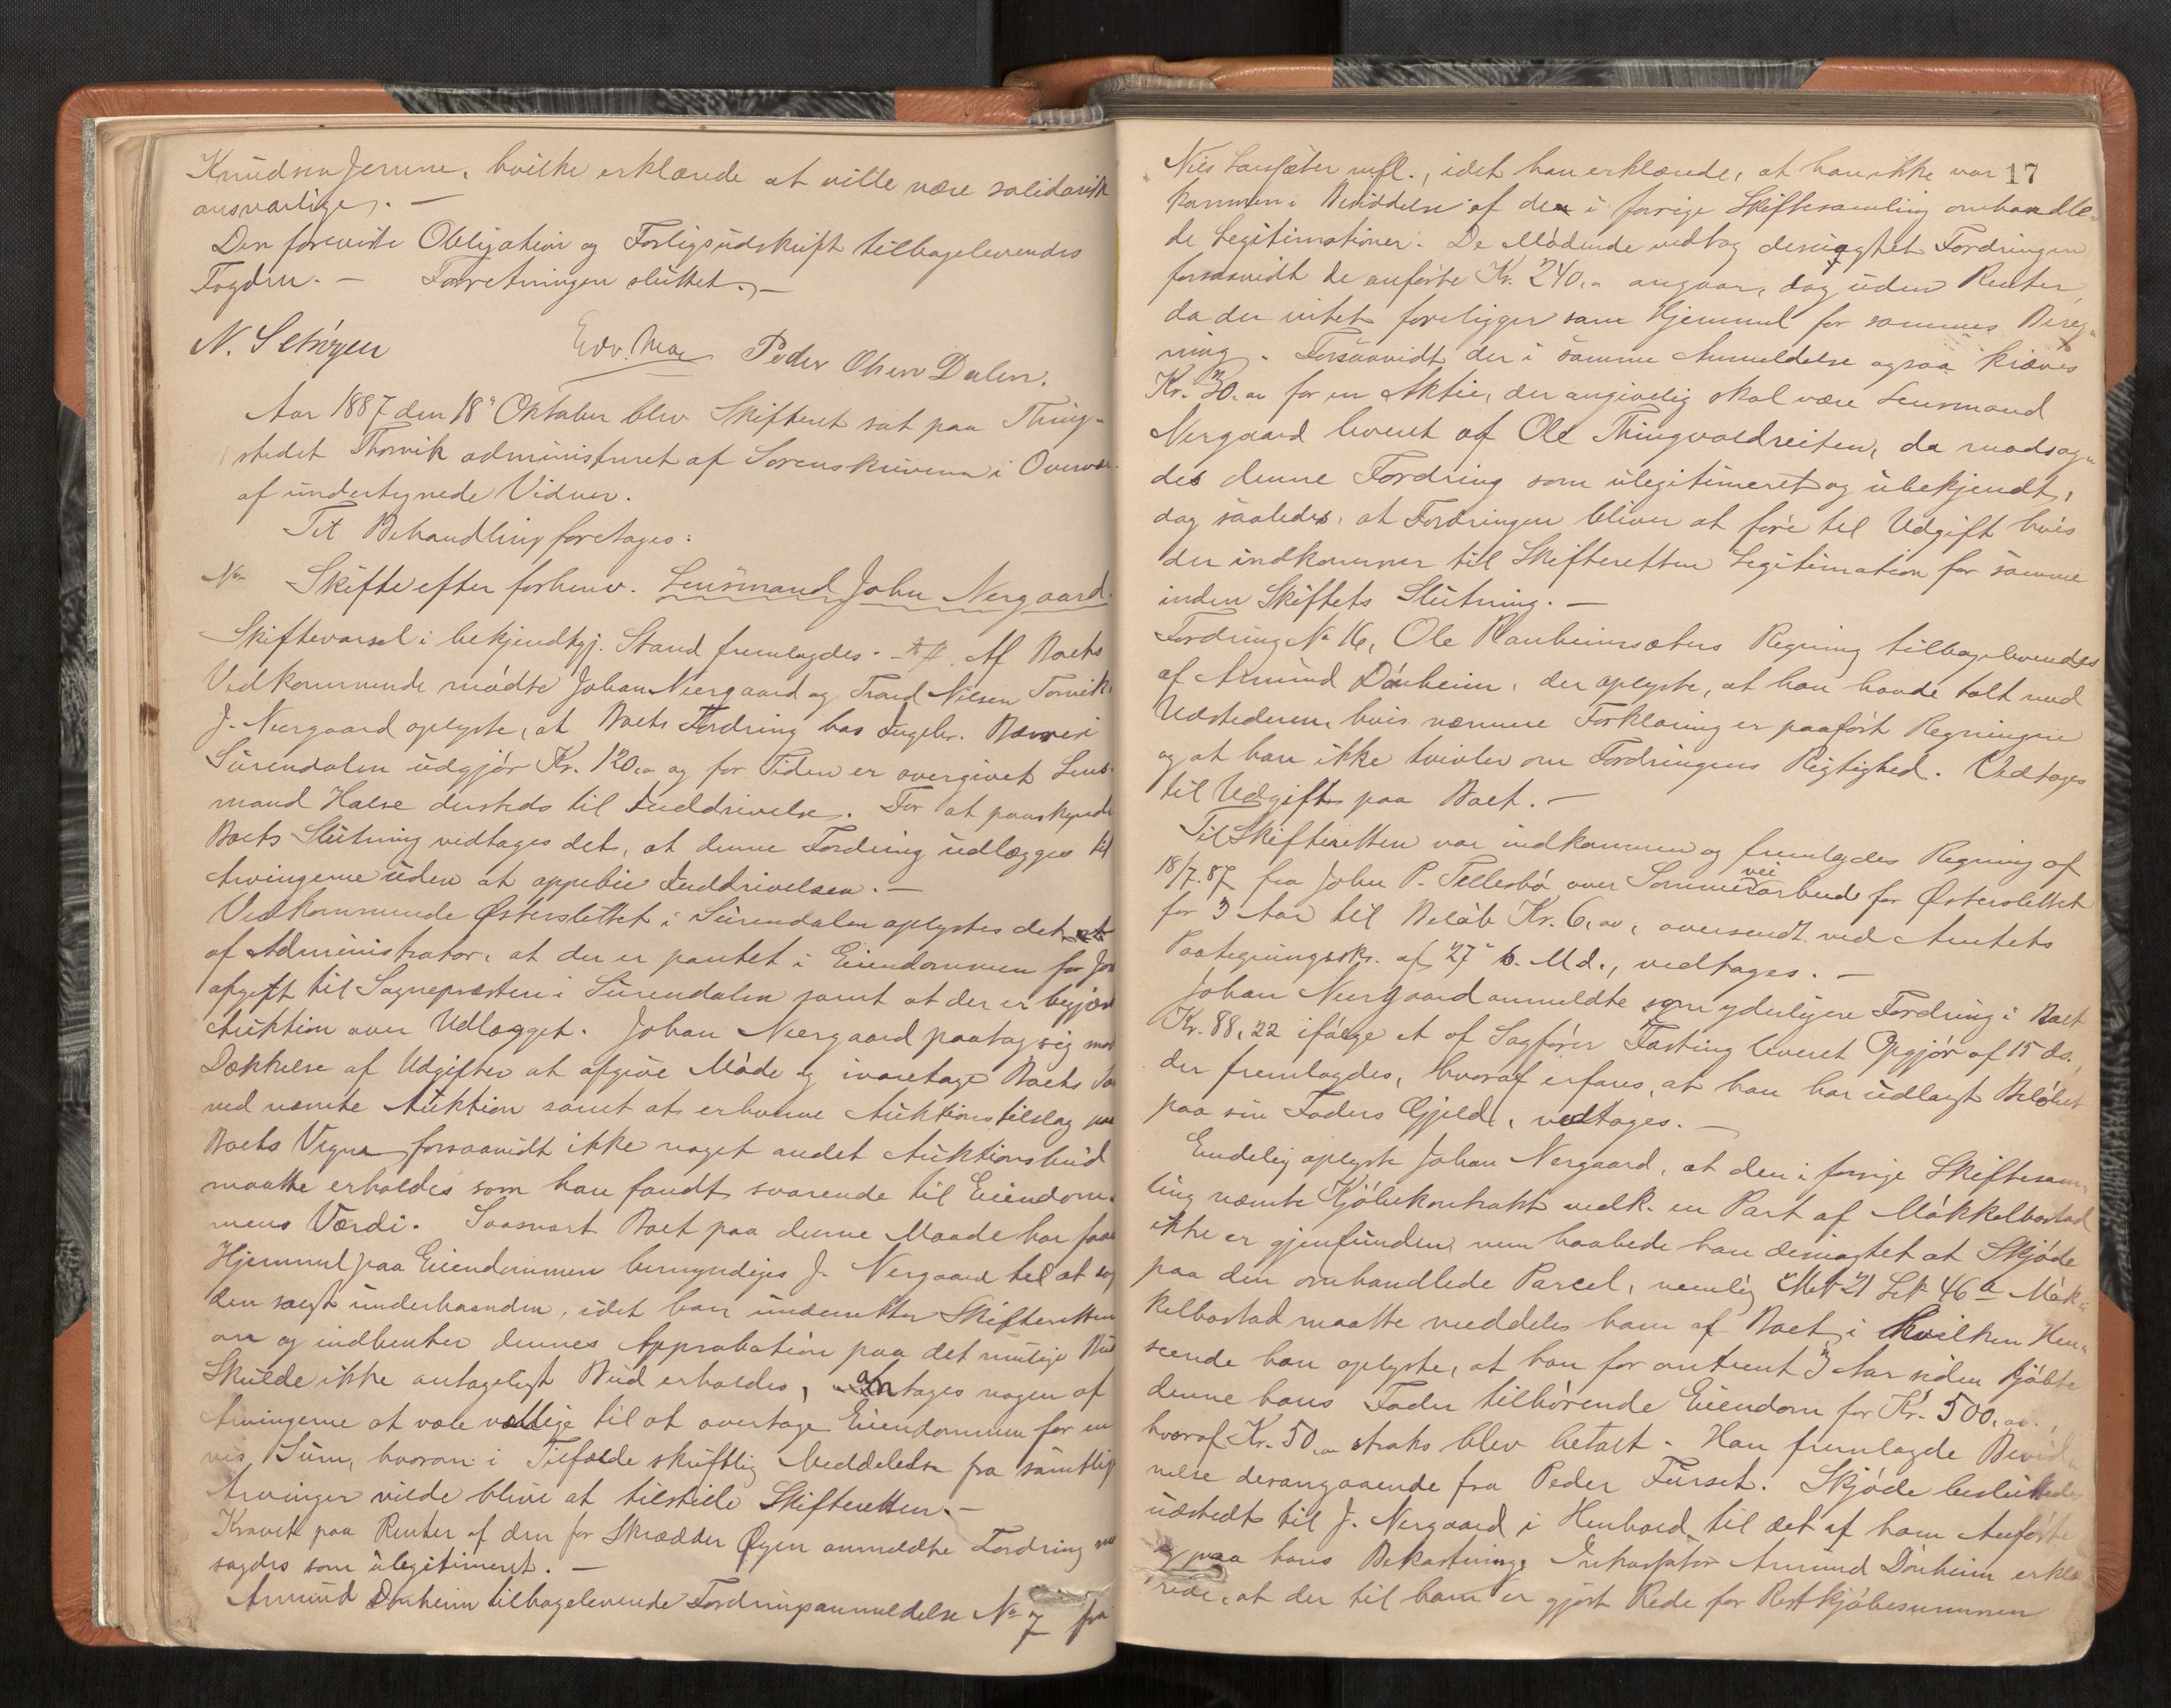 Knudsen Jerme, hvilke erklærede at ville være solidarisk
ansvarlige. —
Den foreviste Obligation og Forligsudskrift tilbageleveredes
Fogden. — Forretningen sluttet. —
N. Edv. Moe Peder Olsen Dalen.
Aar 1887 den 18de Oktober blev Skifteret sat paa Thing-
stedet Thorvik administreret af Sorenskriveren i Overvær
af undertegnede Vidner.
Til Behandling foretages:
No Skifte efter forhenv. Lensmand John Nergaard.
Skiftevarsel i bekjendtgj. Stand fremlagdes. — Af Boets
Vedkommende mødte Johan Neergaard og Trond Nilsen Torvik.
J. Neergaard oplyste, at Boets Fordring hos Ingebr. i
Surendalen udgjør Kr. 120,00 og for Tiden er overgivet Lens-
mand Halse dersteds til Inddrivelse. For at paaskynde
Boets Slutning vedtages det, at denne Fordring udlægges til
Arvingerne uden at oppebie Inddrivelsen. —
Vedkommende Østerslettet i Surendalen oplystes det
af Administrator, at der er pantet i Eiendommen for Jord
afgift til Sognepresten i Surendalen samt at der er begjært
Auktion over Udlægget. Johan Neergaard paatog sig mod
Dækkelse af Udgifter at afgive Møde og ivaretage Boets Tarv
ved nævnte Auktion samt at erhverve Auktionstilslag paa
Boets Vegne forsaavidt ikke noget andet Auktionsbud
maatte erholdes som han fandt svarende til Eiendom-
mens Værdi. Saasnart Boet paa denne Maade har faaet
Hjemmel paa Eiendommen bemyndiges J. Nergaard til at søge
den solgt underhaanden, idet han underretter Skifteretten
om og indhenter dennes Approbation paa det mulige Bud
Skulde ikke antageligt Bud erholdes, antages nogen af
Arvingerne at være villige til at overtage Eiendommen for en
vis Sum, hvorom i Tilfælde skriftlig Meddelelse fra samtlige
Arvinger vilde blive at tilstille Skifteretten. —
Kravet paa Renter af den for Skrædder Øyen anmeldte Fordring mod
sagdes som ulegitimeret. —
Amund Dønheim tilbageleverede Fordringsanmeldelse No 7 fra
17
Nils m.fl., idet han erklærede, at han ikke var
kommen i Besiddelse af de i forrige Skiftesamling omhandle-
de Legitimationer. De Mødende vedtog desuagtet Fordringen
forsaavidt de anførte Kr. 240,00 angaar, dog uden Renter,
da der intet foreligger som Hjemmel for sammes Bereg-
ning. Forsaavidt der i samme Anmeldelse ogsaa kræves
Kr. 30,00 for en Aktie, der angivelig skal være Lensmand
Nergaard leveret af Ole Thingvoldreiten, da modsag-
des denne Fordring som ulegitimeret og ubekjendt,
dog saaledes, at Fordringen bliver at føre til Udgift hvis
der indkommer til Skifteretten Legitimation for samme
inden Skiftets Slutning. —
Fordring No 16, Ole Ranheimsæters Regning tilbageleveredes
af Amund Dønheim, der oplyste, at han havde talt med
Udstederen, hvis nærmere Forklaring er paaført Regningen
og at han ikke tvivler om Fordringens Rigtighed. Vedtages
til Udgift paa Boet. —
Til Skifteretten var indkommen og fremlagdes Regning af
18/7.87 fra John P. Tellesbø over Sommerveiarbeide for Østerslettet
for 3 Aar til Beløb Kr. 6,00, oversendt ved Amtets
Paategningsskr. af 27de s. Md., vedtages. —
Johan Neergaard anmeldte som yderligere Fordring i Boet
Kr. 88,22 ifølge et af Sagfører Fasting leveret Opgjør af 15 ds.,
der fremlagdes, hvoraf erfares, at han har udlagt Beløbet
paa sin Faders Gjæld, vedtages. —
Endelig oplyste Johan Nergaard, at den i forrige Skiftesam-
ling nævnte Kjøbekontrakt vedk. en Part af Møkkelbostad
ikke er gjenfunden, men haabede han desuagtet at Skjøde
paa den omhandlede Parcel, nemlig Mt 21 Lb 46a Møk-
kelbostad maatte meddeles ham af Boet, i hvilken Hen-
seende han oplyste, at han for omtrent 3 Aar siden kjøbte
denne hans Fader tilhørende Eiendom for Kr. 500,00,
hvoraf Kr. 50,00 straks blev betalt. Han fremlagde Bevid-
nelse derangaaende fra Peder Furset. Skjøde besluttedes
udstedt til J. Nergaard i Henhold til det af ham Anførte
og paa hans Bekostning. Inkassator Amund Dønheim erklæ-
rede, at der til ham er gjort Rede for Restkjøbesummen